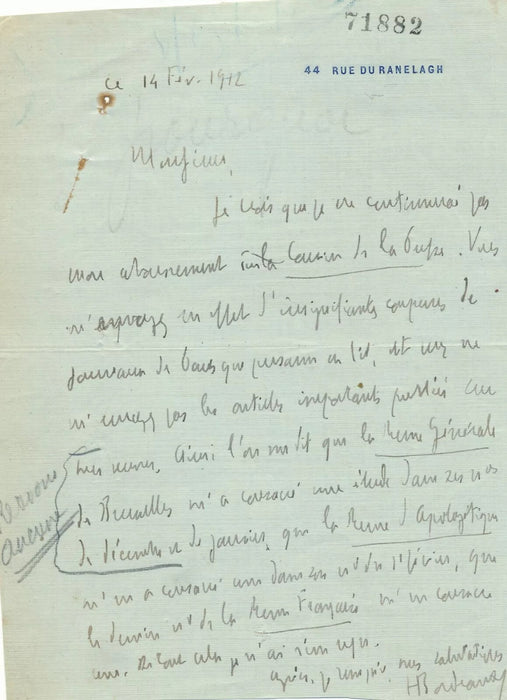 71882
44 RUE DU RANELAGH
ce 14 Fév. 1912
Monsieur,
Je crois que je ne continuerai pas
mon abonnement au Courrier de la Presse. Vous
m'envoyez en effet d'insignifiantes coupures de
journaux de Paris que personne ne lit, et vous ne
m'envoyez pas les articles importants publiés sur
mes œuvres. Ainsi l'on me dit que la Revue Générale
de Bruxelles m'a consacré une étude dans ses nos
de décembre et de janvier, que la Revue d'Apologétique
m'en a consacré une dans son n° du 1er février, que
le dernier n° de la Revue Française m'en consacre
une. De tout cela je n'ai rien reçu.
Agréez, je vous prie, mes salutations
HBordeaux